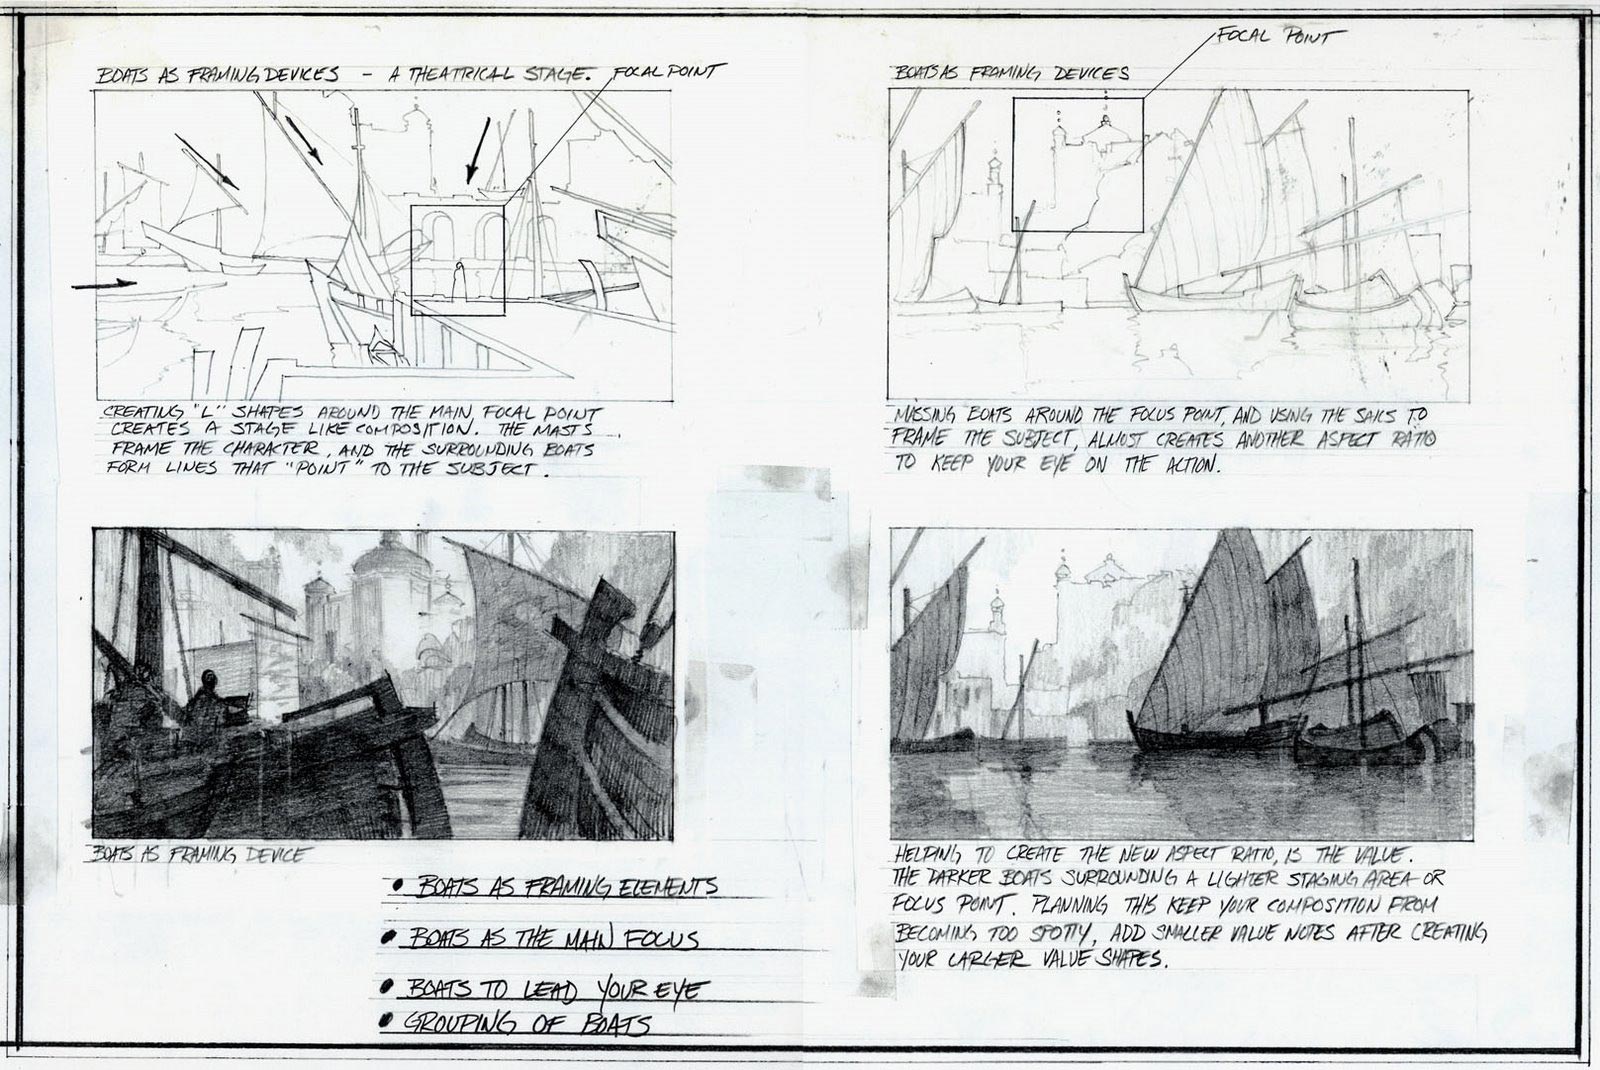 BOATS AS FRAMING DEVICES - A THEATRICAL STAGE.
FOCAL POINT
CREATING "L" SHAPES AROUND THE MAIN FOCAL POINT
CREATES A STAGE LIKE COMPOSITION. THE MASTS
FRAME THE CHARACTER, AND THE SURROUNDING BOATS
FORM LINES THAT "POINT" TO THE SUBJECT.
FOCAL POINT
BOATS AS FRAMING DEVICES
MASSING BOATS AROUND THE FOCUS POINT, AND USING THE SAILS TO
FRAME THE SUBJECT, ALMOST CREATES ANOTHER ASPECT RATIO
TO KEEP YOUR EYE ON THE ACTION.
BOATS AS FRAMING DEVICE
HELPING TO CREATE THE NEW ASPECT RATIO, IS THE VALUE.
THE DARKER BOATS SURROUNDING A LIGHTER STAGING AREA OR
FOCUS POINT. PLANNING THIS KEEP YOUR COMPOSITION FROM
BECOMING TOO SPOTTY, ADD SMALLER VALUE NOTES AFTER CREATING
YOUR LARGER VALUE SHAPES.
• BOATS AS FRAMING ELEMENTS
• BOATS AS THE MAIN FOCUS
• BOATS TO LEAD YOUR EYE
• GROUPING OF BOATS